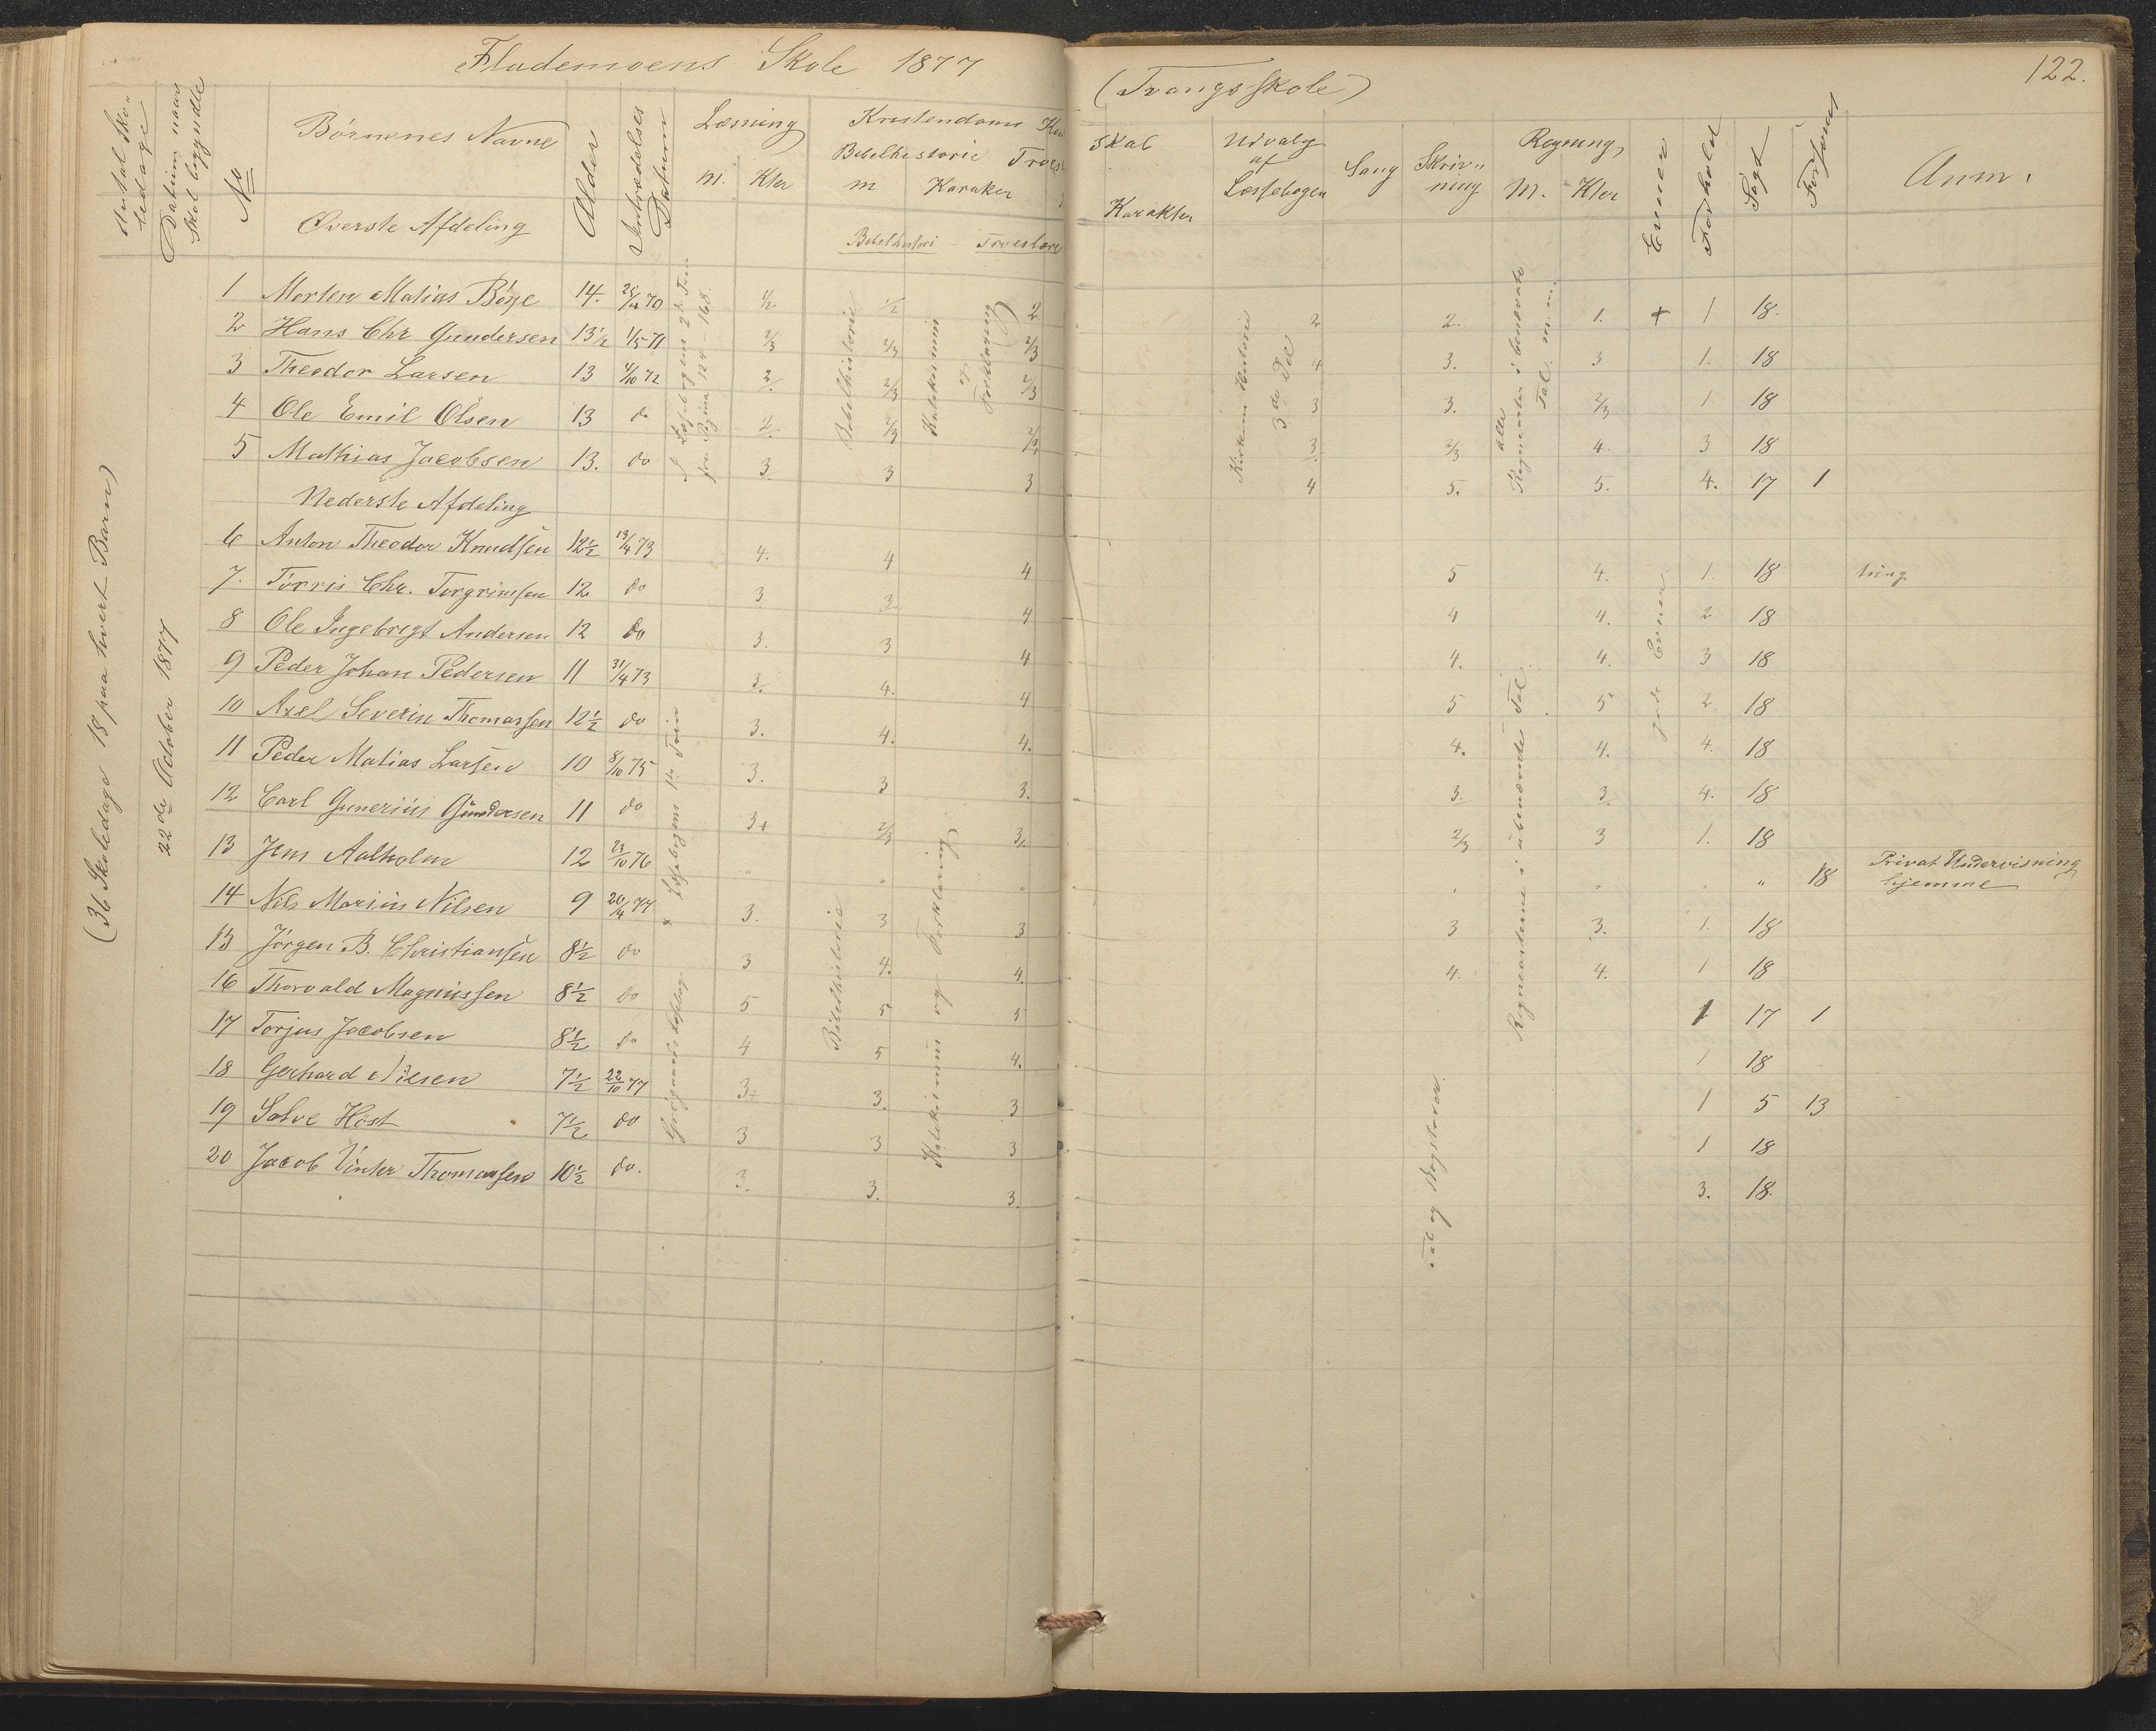 Flademoens Skole 1877 (Tvangsskole) 122.
Antal Sko-
ledage
Datum naar
Skol begyndte
No
Børnenes Navne
Alder
Indtrædelses
Datum
Læsning
M. Kter
Kristendoms Kund
skab
Bibelhistorie Troes
m Karakter
Karakter
Udvalg
af
Læsebogen
Sang
Skriv-
ning
Regning
M. Kter
Evner
Forhold
Søgt
Forsømt
Anm.
Øverste Afdeling
Bibelhistori Troeslære
(36 Skoledage 18 paa hvert Barn)
22de October 1877
1 Morten Matias Böye 14. 70 1/2 1/2 2 2 2. 1. + 1 18.
2 Hans Chr Gundersen 13½ 1/5 71 2/3 2/3 2/3 4 3. 3 1. 18
3 Theodor Larsen 13 72 2. 2/3 2/3 3 3. 2/3 1 18
4 Ole Emil Olsen 13 do 2. 2/3 2/3 3 2/3 4. 3 18
5 Mathias Jacobsen 13. do 3. 3 3 4 5. 5. 4. 17 1
Læsebogens 2det Trin
fra Pagina 124-168.
Bibelhistorie
Katekismi
og
Forklaring
Kirkens Historie
3de Del
alle
Regnearter i benævnte
Tal m.m.
Nederste Afdeling
6 Anton Theodor Knudsen 12½ 13/4 73 4. 4 4 5 4. 1. 18
7. Törris Chr. Torgrimsen 12 do 3 3. 4 4 4. 2 18
8 Ole Ingebregt Andersen 12 do 3. 3 4 4. 4. 3 18
9 Peder Johan Pedersen 11 31/4 73 3. 4. 4 5 5 2. 18
10 Axel Severin Thomassen 12½ do 3. 4. 4. 4. 4. 4. 18
11 Peder Matias Larsen 10 8/10 75 3. 3 3. 3. 3. 4. 18
12 Carl Gunerius Gundersen 11 do 3+ 2/3 3. 2/3 3 1. 18
13 Jens Aalholm 12 23/10 76 " " " " " " " 18 Privat Undervisning
hjemme
14 Nils Marius Nilsen 9 20/4 77 3. 3 3 3 3. 1. 18
15 Jörgen B. Christiansen 8½ do 3 4. 4. 4. 4. 1 18
16 Thorvald Magnussen 8½ do 5 5 5 1 17 1
17 Torjus Jacobsen 8½ do 4 5 4. 1 18
18 Gerhard Nilsen 7½ 22/10 77 3. 3. 3 1 5 13
19 Salve Höst 7½ do 3 3 3 1 18
20 Jacob Vinter Thomassen 10½ do. 3. 3. 3. 3. 18.
Læsebogens 1ste Trin
Bibelhistorie
Katekismi og Forklaring
Tal og Bogstaver.
Regnearterne i ubenævnte Tal.
gode Evner.